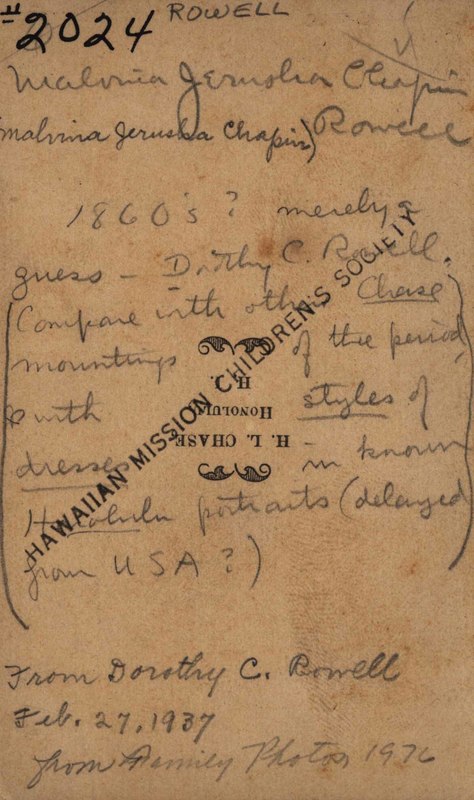 # 2024
ROWELL
Malvina Jerusha Chapin
(Malvina Jerusha Chapin) Rowell
1860's? merely a
guess - Dorothy C. Rowell.
(Compare with other Chase
mountings of the period,
& with styles of
dresses in known
Honolulu portraits (delayed
from USA?)
HAWAIIAN MISSION CHILDREN'S SOCIETY
H. L. CHASE
HONOLULU
H. I.
From Dorothy C. Rowell
Feb. 27, 1937
from Family Photos 1976